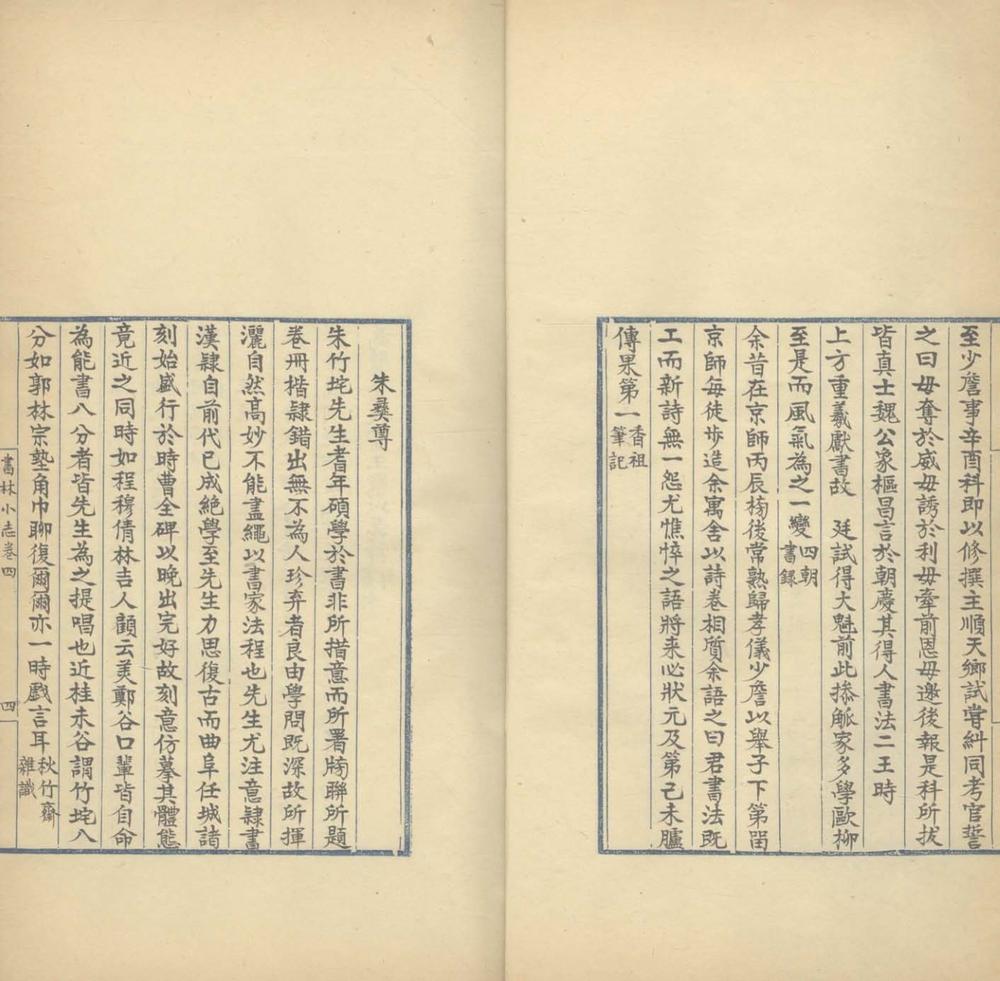 至少詹事辛酉科即以修撰主順天鄉試甞糾同考官誓
之曰毋奪於威毋誘於利毋牽前恩毋邀後報是科所拔
皆真士魏公象樞昌言於朝慶其得人書法二王時
上方重羲獻書故　廷試得大魁前此掺觚家多學歐柳
至是而風氣為之一變四朝書錄
余昔在京師丙辰榜後常熟歸孝儀少詹以舉子下第畱
京師每徒步造余寓舍以詩卷相質余語之曰君書法既
工而新詩無一怨尤憔悴之語將来必狀元及第己未臚
傳果第一香祖筆記
朱彝尊
朱竹垞先生耆年碩學於書非所措意而所署牓聯所題
卷冊楷隷錯出無不為人珍弆者良由學問既深故所揮
灑自然高妙不能盡繩以書家法程也先生尤注意隷書
漢隷自前代已成絶學至先生力思復古而曲阜任城諸
刻始盛行於時曹全碑以晚出完好故刻意仿摹其體態
竟近之同時如程穆倩林吉人顧云美鄭谷口輩皆自命
為能書八分者皆先生為之提唱也近桂未谷謂竹垞八
分如郭林宗墊角巾聊復爾爾亦一時戲言耳秋竹齋雜識
書林小志卷四
四